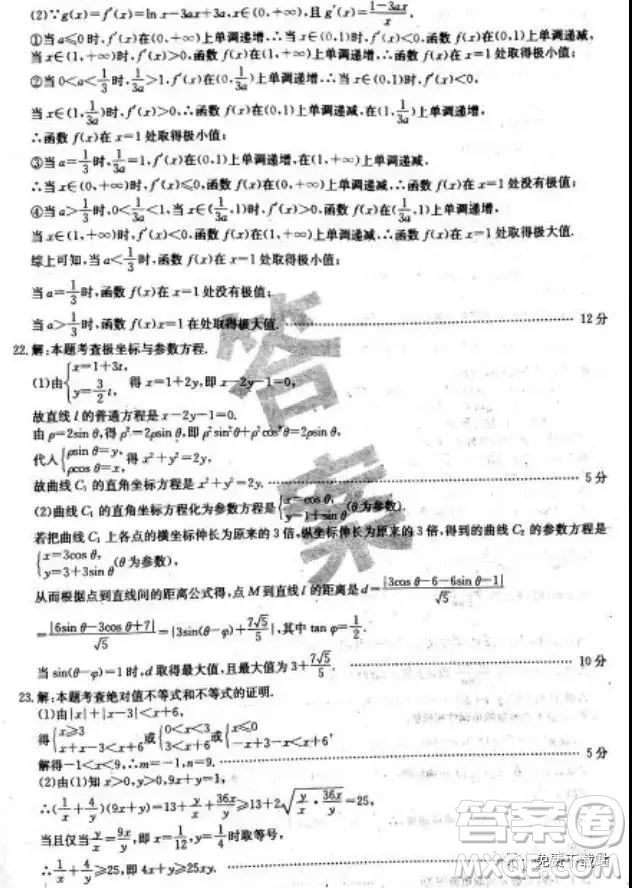 (2)∵g(x)=f′(x)=ln x-3ax+3a,x∈(0,+∞),且 g′(x)=\frac{1-3ax}{x}.
①当 a≤0 时,f′(x)在(0,+∞)上单调递增.∴当 x∈(0,1)时,f′(x)<0,
当 x∈(1,+∞)时,f′(x)>0,∴函数 f(x)在 x=1 处取得极小值;
②当 0<a<\frac{1}{3}时,\frac{1}{3a}>1,f′(x)在(0,\frac{1}{3a})上单调递增.∴当 x∈(0,1)时,f′(x)<0,
当 x∈(1,\frac{1}{3a})时,f′(x)>0,∴函数 f(x)在(0,1)上单调递减,在(1,\frac{1}{3a})上单调递增,
∴函数 f(x)在 x=1 处取得极小值;
③当 a=\frac{1}{3}时,\frac{1}{3a}=1,f′(x)在(0,1)上单调递增,在(1,+∞)上单调递减.
∴当 x∈(0,+∞)时,f′(x)≤0,函数 f(x)在(0,+∞)上单调递减,∴函数 f(x)在 x=1 处没有极值;
④当 a>\frac{1}{3}时,0<\frac{1}{3a}<1,当 x∈(\frac{1}{3a},1)时,f′(x)>0,函数 f(x)在(\frac{1}{3a},1)上单调递增,
当 x∈(1,+∞)时,f′(x)<0,函数 f(x)在(1,+∞)上单调递减,∴函数 f(x)在 x=1 处取得极大值.
综上可知,当 a<\frac{1}{3}时,函数 f(x)在 x=1 处取得极小值;
当 a=\frac{1}{3}时,函数 f(x)在 x=1 处没有极值;
当 a>\frac{1}{3}时,函数 f(x)x=1 在处取得极大值. 12 分
22.解:本题考查极坐标与参数方程.
(1)由{x=1+3t, y=\frac{3}{2}t, 得 x=1+2y,即 x-2y-1=0,
故直线 l 的普通方程是 x-2y-1=0.
由 ρ=2sin θ,得 ρ²=2ρsin θ,即 ρ²sin²θ+ρ²cos²θ=2ρsin θ,
代人{ρsin θ=y, ρcos θ=x, 得 x²+y²=2y,
故曲线 C₁ 的直角坐标方程是 x²+y²=2y. 5 分
(2)曲线 C₁ 的直角坐标方程化为参数方程是{x=cos θ, y-1=sin θ (θ为参数).
若把曲线 C₁ 上各点的横坐标伸长为原来的 3 倍,纵坐标伸长为原来的 3 倍,得到的曲线 C₂ 的参数方程是
{x=3cos θ, y=3+3sin θ (θ为参数),
从而根据点到直线间的距离公式得,点 M 到直线 l 的距离是 d=\frac{|3cos θ-6-6sin θ-1|}{√5}
=\frac{|6sin θ-3cos θ+7|}{√5}=|3sin(θ-φ)+\frac{7√5}{5}|,其中 tan φ=\frac{1}{2}.
当 sin(θ-φ)=1 时,d 取得最大值,且最大值为 3+\frac{7√5}{5}. 10 分
23.解:本题考查绝对值不等式和不等式的证明.
(1)由|x|+|x-3|<x+6,
得{x≥3, x+x-3<x+6 或{0<x<3, x+3-x<x+6 或{x≤0, -x+3-x<x+6,
解得-1<x<9,∴m=-1,n=9. 5 分
(2)由(1)知 x>0,y>0,9x+y=1,
∴(\frac{1}{x}+\frac{4}{y})(9x+y)=13+\frac{y}{x}+\frac{36x}{y}≥13+2\sqrt{\frac{y}{x}·\frac{36x}{y}}=25,
当且仅当\frac{y}{x}=\frac{9x}{y},即 x=\frac{1}{12},y=\frac{1}{4}时取等号,
∴\frac{1}{x}+\frac{4}{y}≥25,即 4x+y≥25xy.
答案
答案圈
免费下载站
MXQE.COM